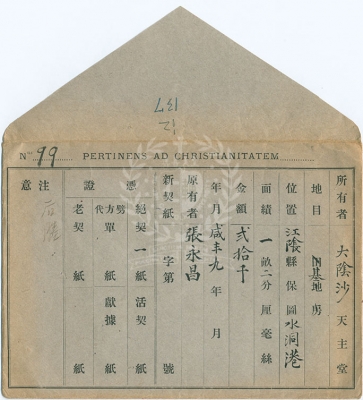 12
137
No 99 PERTINENS AD CHRISTIANITATEM
所有者 大陰沙 天主堂
地目 基地 房
位置 江陰縣 保 圖 水洞港
面績 一畝二分 厘 毫 絲
金額 貳拾千
年月 咸丰九年 月
原有者 張永昌
新契紙 字第 號
憑證
絕契 一 紙 活契 紙
代劈方單 紙 獻據 紙
老契 紙
注意